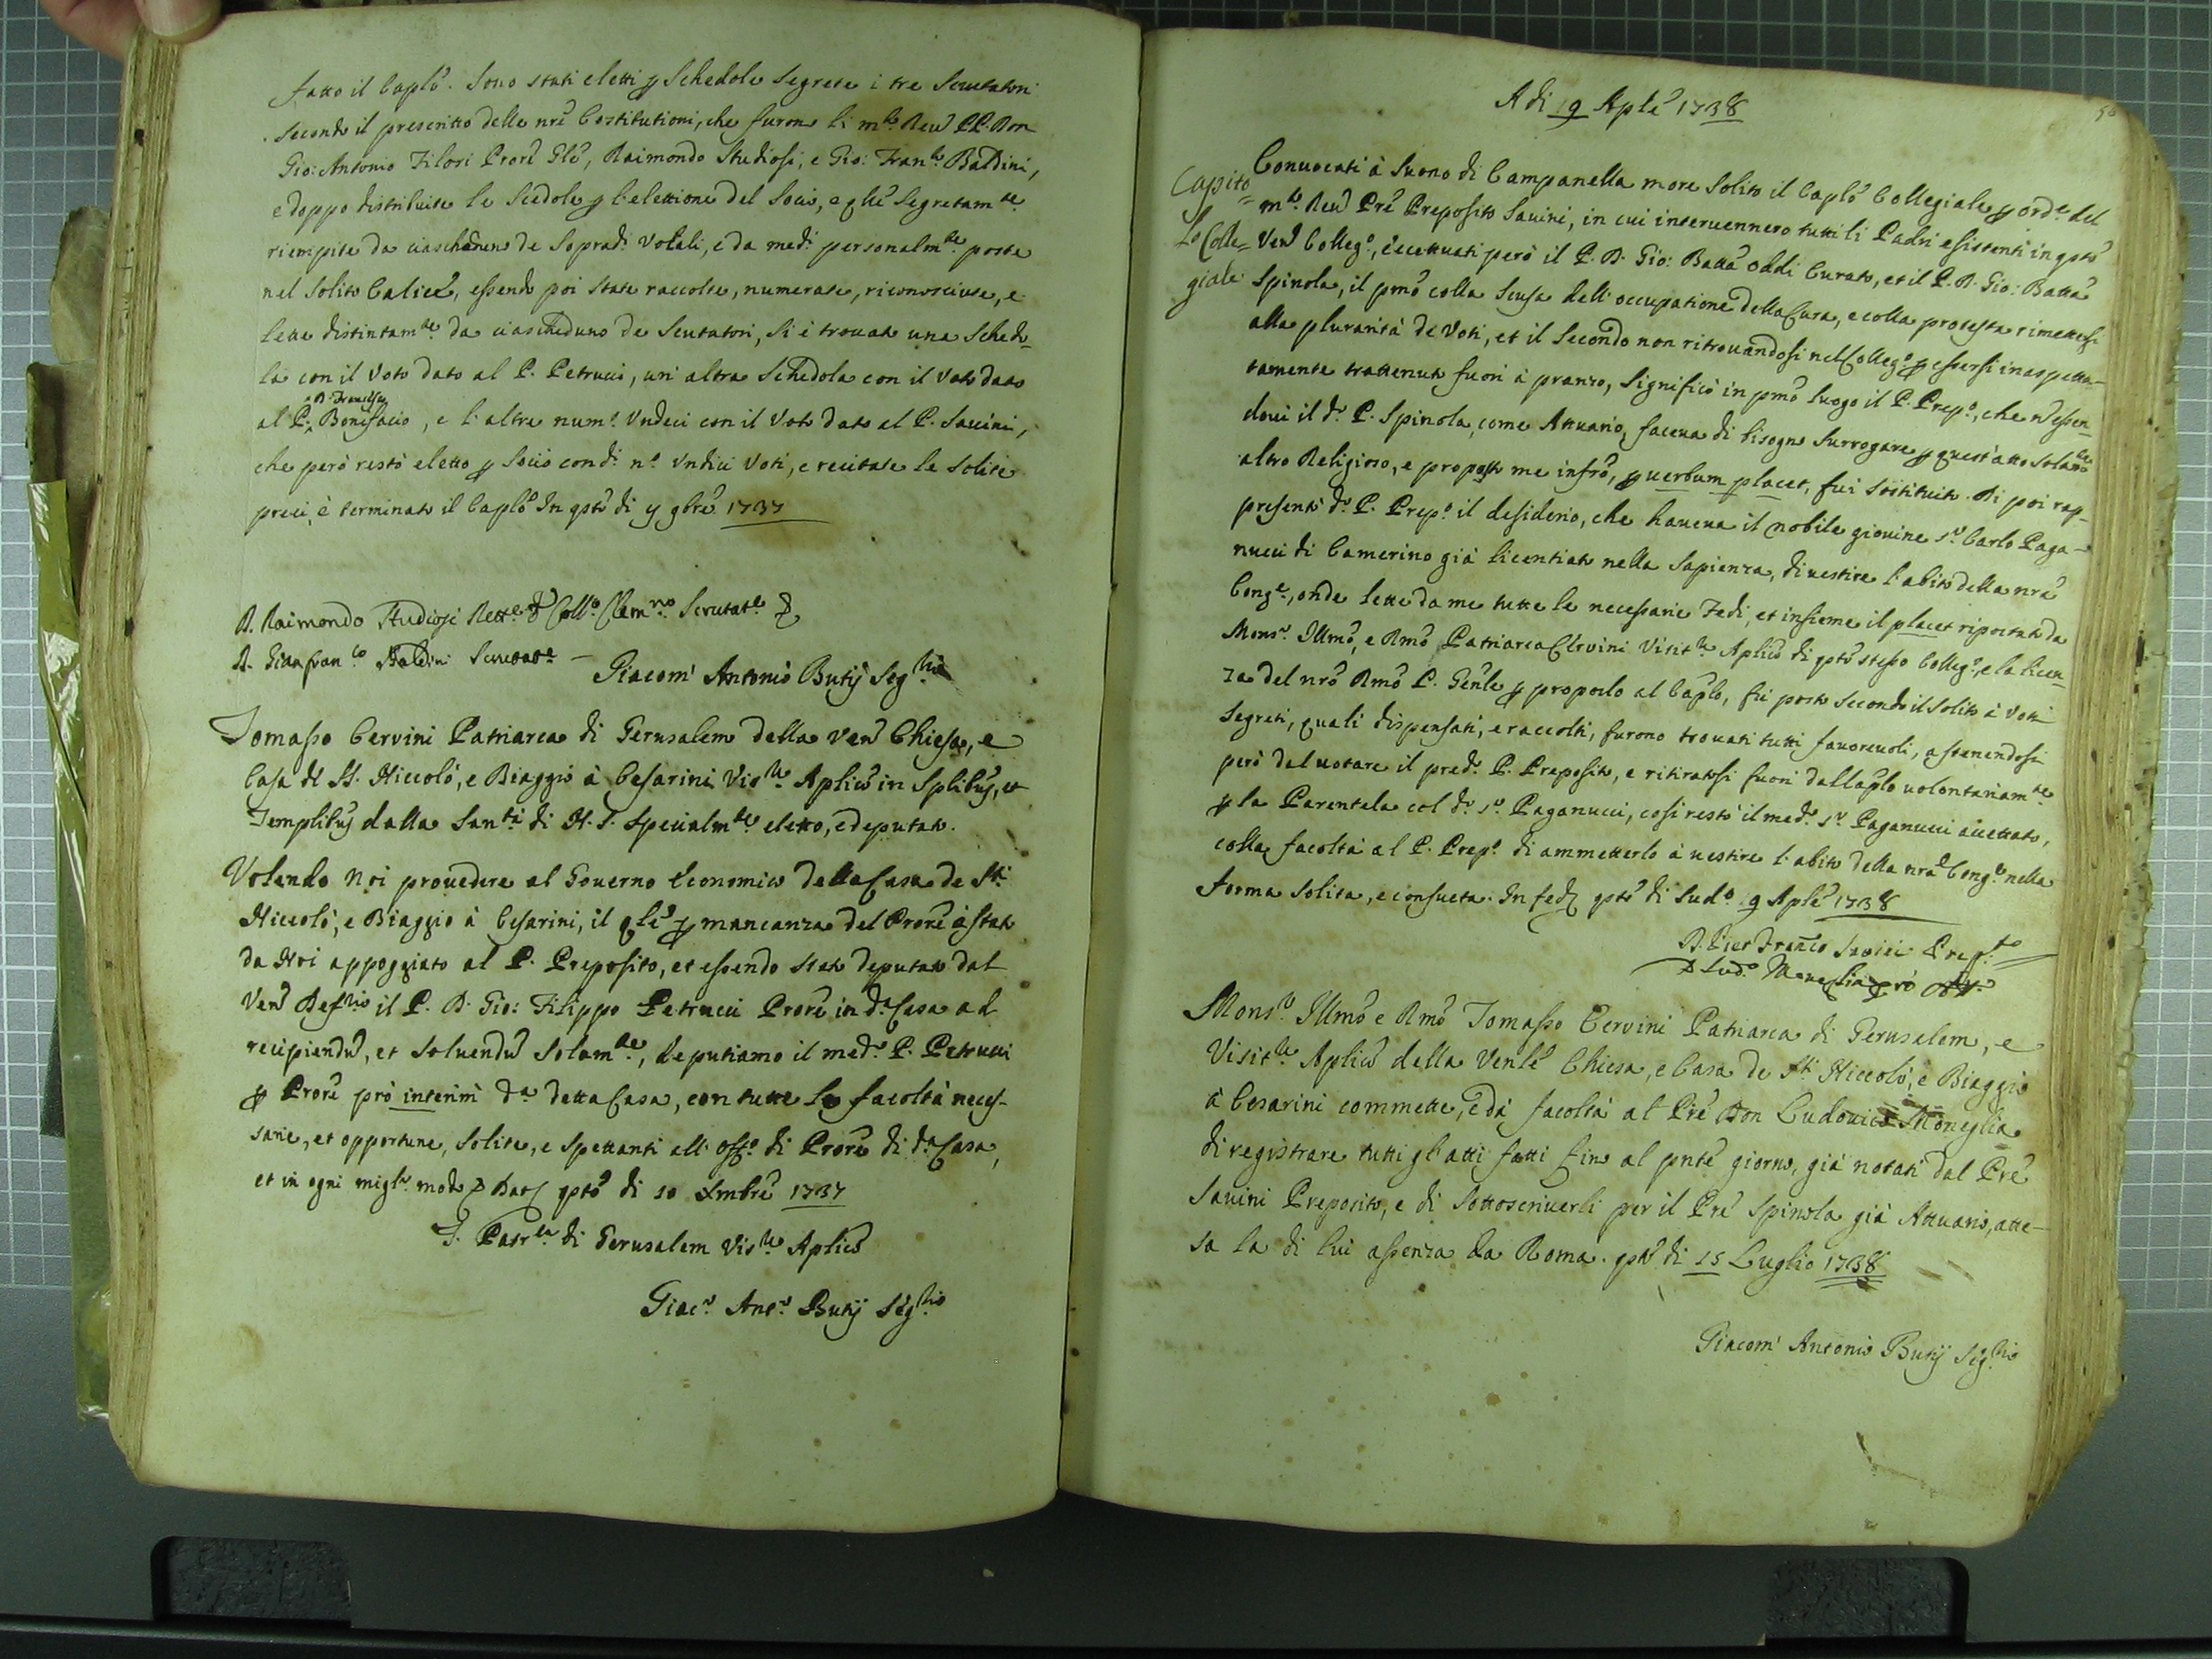 fatto il Caplō. Sono stati eletti ꝑ Schedole Segrete i tre Scrutatori
secondo il prescritto delle nrē Costitutioni, che furono li mto. Reud PP. Don
Gio: Antonio Filori Prorē Glē, Raimondo Studiosi, e Gio: Franco. Baldini,
e doppo distribuite le Scedole ꝑ l'elettione del Socio, e qlle Segretamte.
riempite da ciascheduno de Sopradi. Vocali, e da medi. personalmte. poste
nel Solito Calice, essendo poi state raccolte, numerate, riconosciute, e
lette distintamte. da ciascheduno de Scutatori, si è trouata una Schedo-
la con il Voto dato al P. Petrucci, un'altra Schedola con il Voto dato
al P. D. Francesco Bonifacio, e l'altre numo. Undeci con il Voto dato al P. Sauini,
che però restò eletto ꝑ Socio con di. no. Undici Voti, e recitate le solite
preci, è terminato il Caplō In qsto di 9 9brē 1737
D. Raimondo Studiosi Rette. d Collo. Clemno. Scrutate.
D. Gianfranco. Baldini Scrutate.
Giacom' Antonio Butij Segrio.
Tomasso Cervini Patriarca di Gerusalem della Vend Chiesa, e
Casa di SS. Niccolò, e Biaggio à Cesarini Visre. Aplico in Splibus, et
Templibus dalla Santà. di N. S. Specialmte. eletto, e deputato.
Volendo Noi prouedere al Gouerno Economico della Casa de Sti.
Niccolò, e Biaggio à Cesarini, il qlē ꝑ mancanza del Prorē è stato
da Noi appoggiato al P. Preposito, et essendo stato deputato dal
Vend Defrio. il P. D. Gio: Filippo Petrucci Prorē in da. Casa ad
recipiendū, et soluendū solamte., deputiamo il medo. P. Petrucci
ꝑ Prorē prò interim da detta Casa, con tutte le facoltà neces-
sarie, et opportune, solite, e spettanti all' offo. di Prorē di da. Casa,
et in ogni miglr. modo Dat qsto di 10 Xmbrē 1737
T. Patrca. di Gerusalem Visre. Aplico
Giaco. Anto. Butij Segrio.
A di 19 Aplē 1738
Capito=
lo Colle=
giale
Conuocati à Suono di Campanella more Solito il Caplō Collegiale ꝑ orde. del
mto. Reud Prē Preposito Sauini, in cui interuennero tutti li Padri esistenti in qsto
Vend Collego., eccettuati però il P. D. Gio: Battā Oddi Curato, et il P. D. Gio: Battā
Spinola, il pmō colla scusa dell' occupatione della Cura, e colla protesta rimettersi
alla pluralità de Voti, et il Secondo non ritrouandosi nel Collego. ꝑ essersi inaspetta-
tamente trattenuto fuori à pranzo, significò in pmō luogo il P. Prepo., che nō essen-
doui il do. P. Spinola, come Attuario, faceua di bisogno surrogare ꝑ quest' atto solamte.
altro Religioso, e proposto me infrō, ꝑ uerbum placet, fui sostituito. Di poi rap-
presentò do. P. Prepo. il desiderio, che haueua il nobile giouine Sr. Carlo Paga-
nucci di Camerino già licentiato nella Sapienza, di uestire l'abito della nrā
Conge., onde lette da me tutte le necessarie Fedi, et insieme il placet riportato da
Monsr. Illmō, e Rmō Patriarca Cervini Visitre. Aplico di qsto stesso Collego., e la licen-
za del nrō Rmō P. Genle ꝑ proporlo al Caplō, fu posto secondo il solito à Voti
segreti, quali dispensati, e raccolti, furono trouati tutti fauoreuoli, astenendosi
però dal uotare il predo. P. Preposito, e ritiratosi fuori dal Caplō uolontariamte.
ꝑ la Parentela col do. Sr. Paganucci, così restò il medo. Sr. Paganucci accettato,
colla facoltà al P. Prepo. di ammetterlo à uestire l'abito della nrā Conge. nella
forma solita, e consueta. In fede qsto di sudo. 19 Aplē 1738
D. Pier Franco Savini Prepto.
D. Ludo. Moneglia prò
Monsr. Illmō e Rmō Tomasso Cervini Patriarca di Gerusalem, e
Visitre. Aplico della Venlē Chiesa, e Casa de Sti. Niccolò, e Biaggio
à Cesarini commette, e dà facoltà al Prē Don Ludovico Moneglia
di registrare tutti gl'atti fatti fino al pntē giorno, già notati dal Prē
Sauini Preposito, e di sottoscriuerli per il Prē Spinola già Attuario, atte-
sa la di lui assenza da Roma. qsto di 15 Luglio 1738
Giacom' Antonio Butij Segrio.